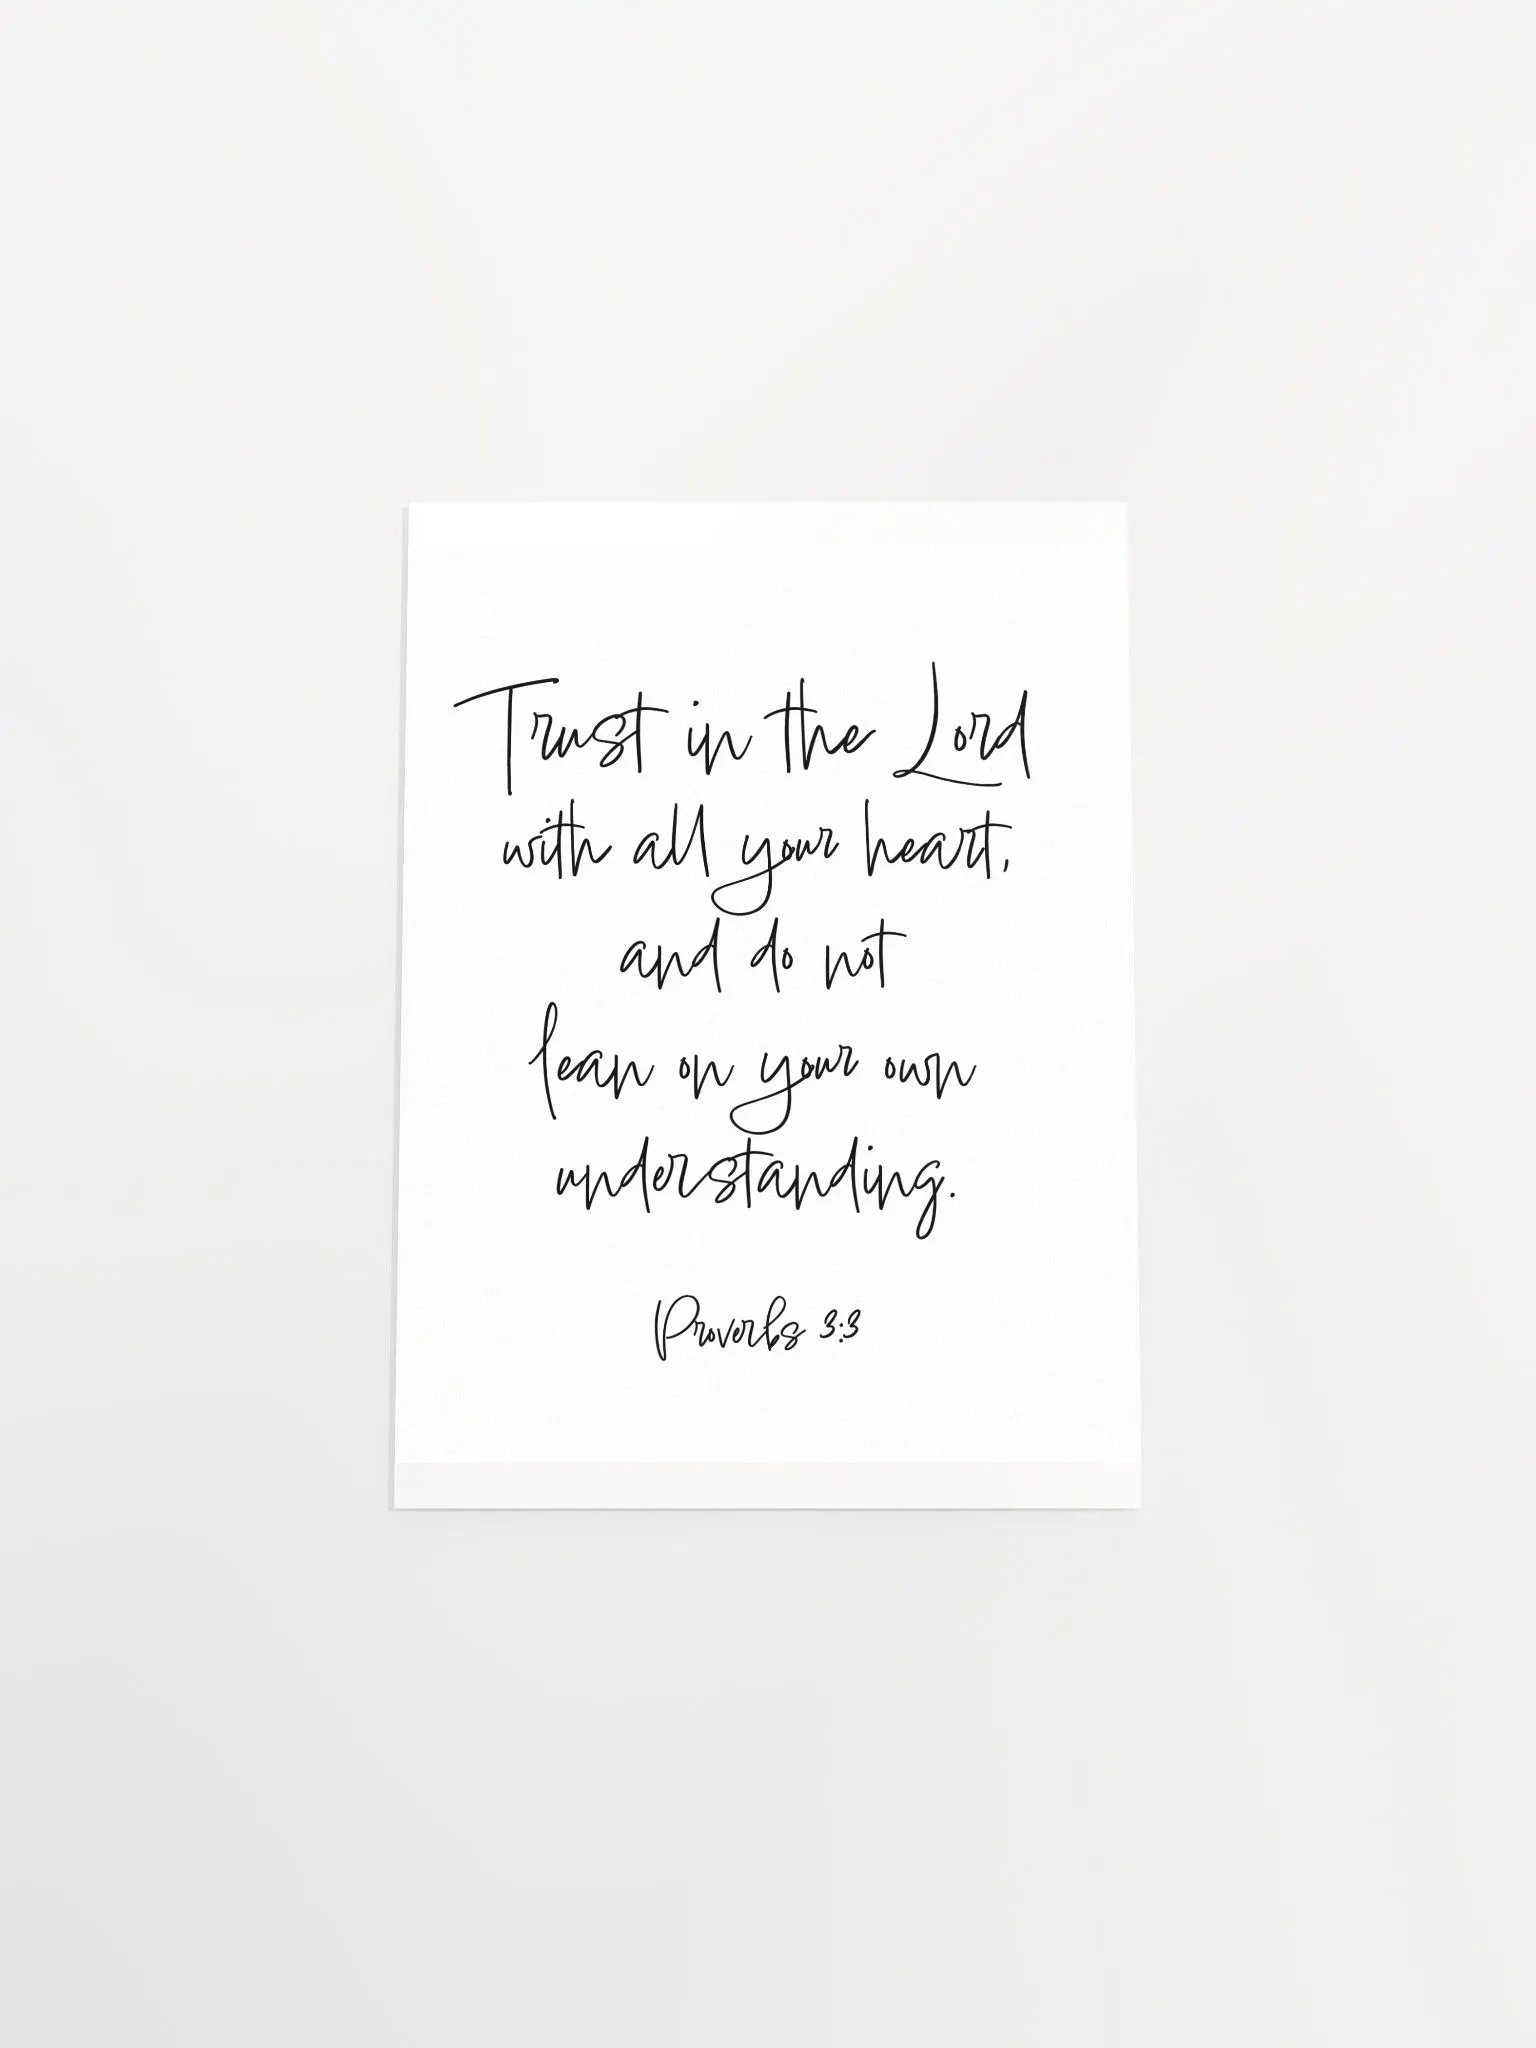 Trust in the Lord
with all your heart,
and do not
lean on your own
understanding.
Proverbs 3:3